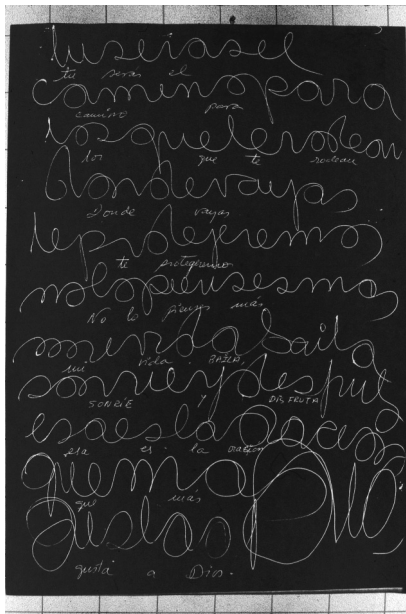 tuserasel
tu seras el
caminopara
camino para
losqueterodean
los que te rodean
dondevayas
Donde vayas
teprotejeremos
te protegeremos
nolopiensesmas
No lo pienses mas
mividabaila
mi vida BAILA
sonrieydisfruta
SONRIE Y DISFRUTA
esaeslaoracion
esa es la oración
quema
que mas
gustaa Dio
gusta a Dios.